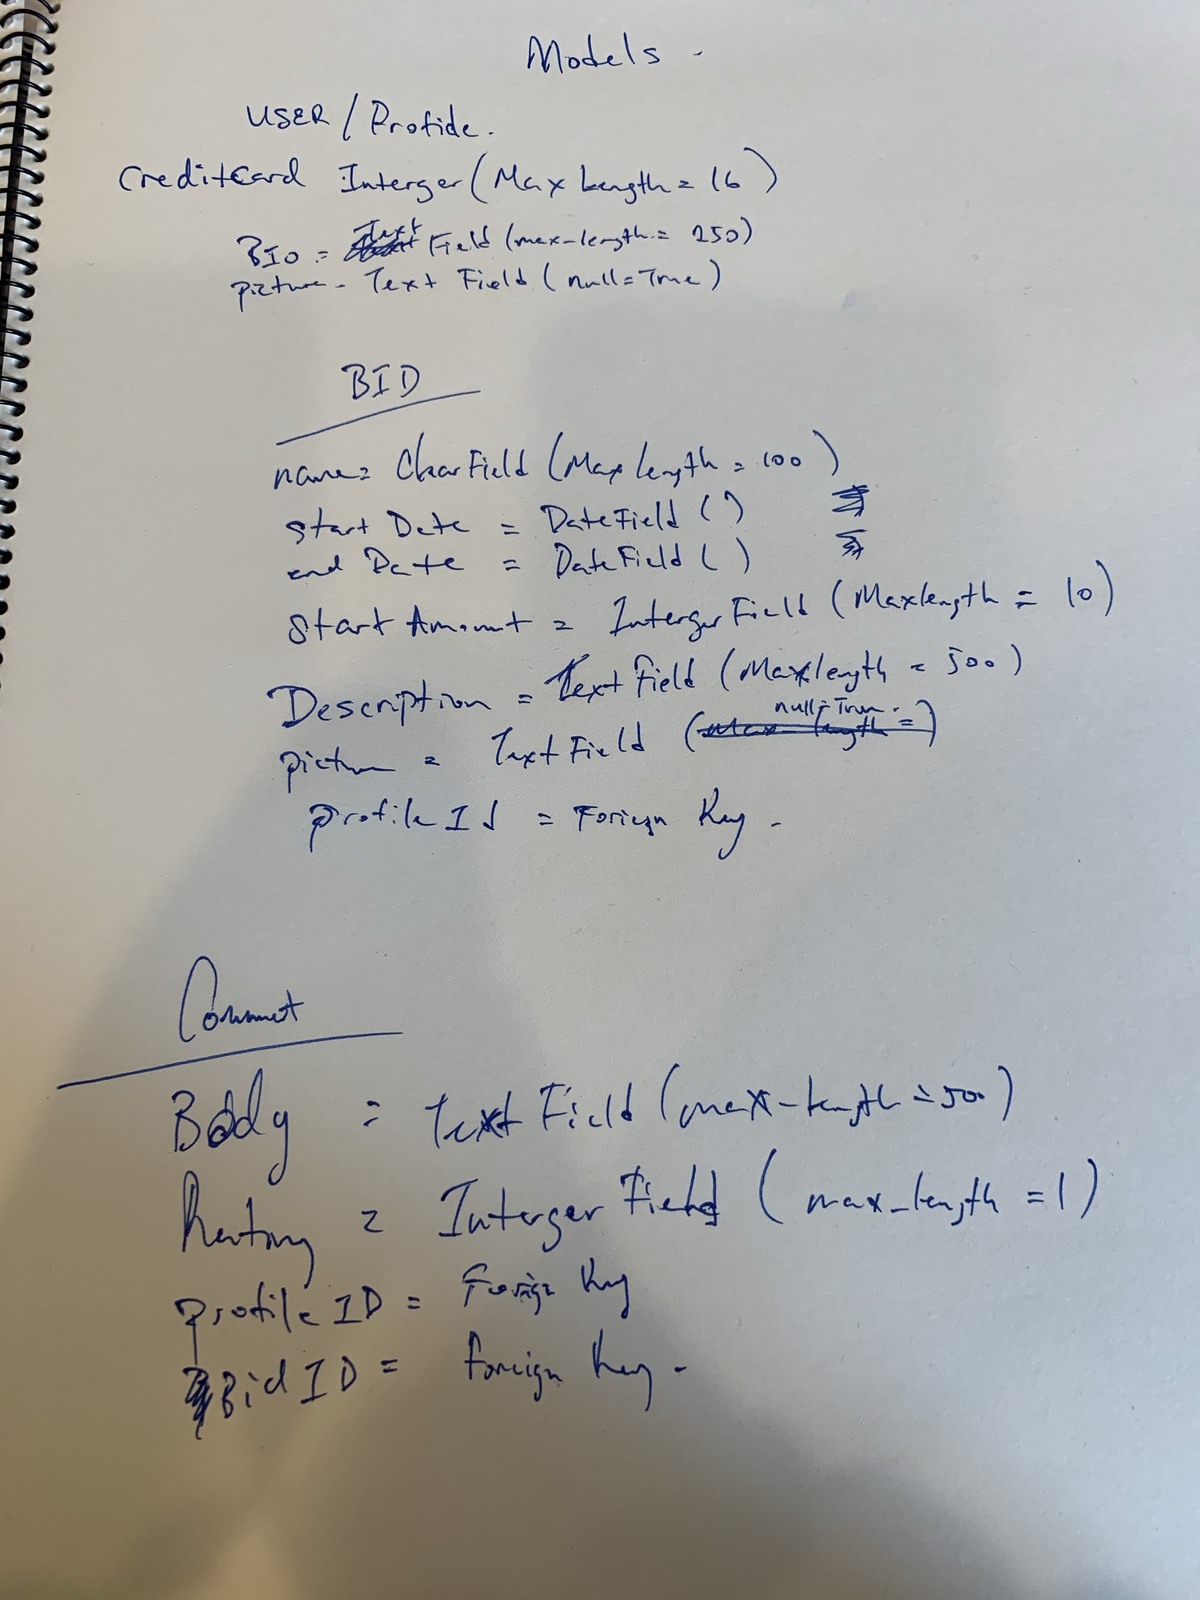 Models -
USER / Profide.
CreditCard Interger (Max Length = 16)
BIO = Text Field (max-length = 250)
picture - Text Field (null = True)
BID
name = CharField (Max length = 100)
start Date = DateField ( )
end Date = DateField ( )
Start Amount = Interger Field (Maxlength = 10)
Description = Text Field (Maxlength = 500)
picture = Text Field (null = True.)
profile Id = Foriegn Key -
Comment
Body = Text Field (max-length = 500)
Rating = Interger Field (max_length = 1)
profile ID = Foreign Key
Bid ID = Foreign Key -